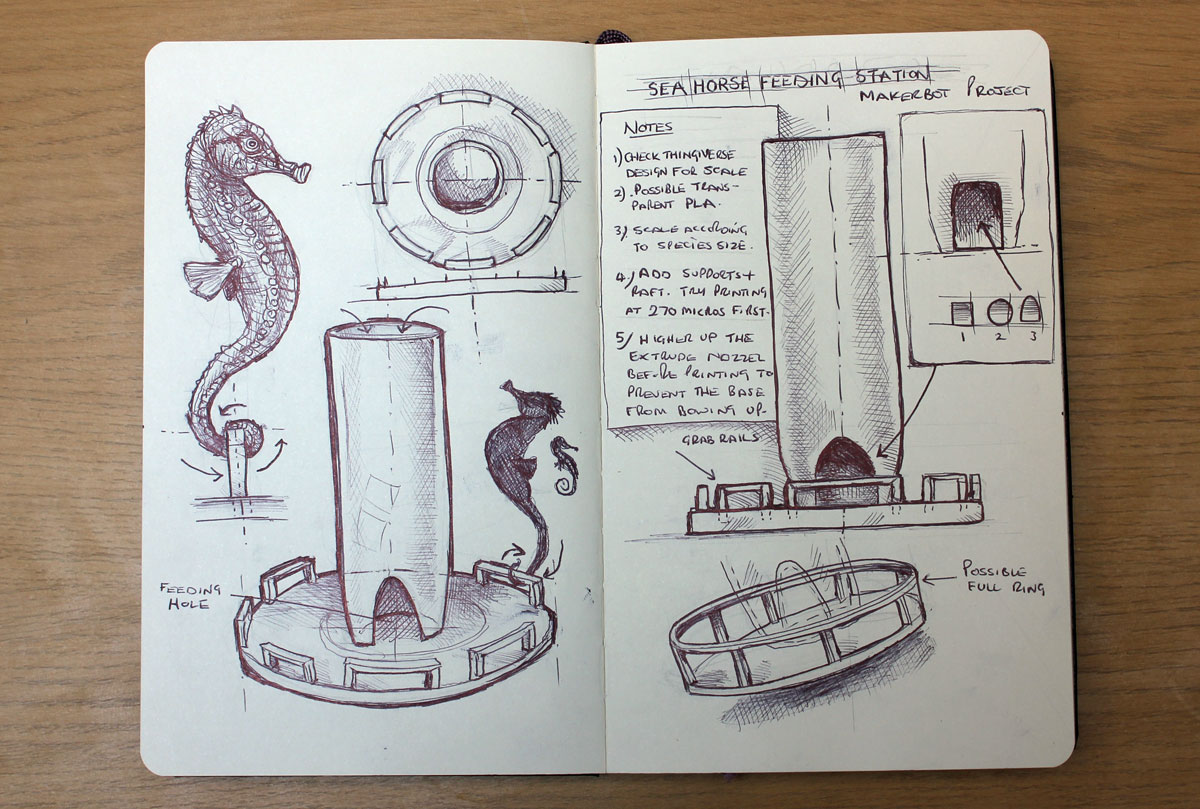 FEEDING
HOLE
SEA HORSE FEEDING STATION
MAKERBOT PROJECT
NOTES
1) CHECK THINGIVERSE
DESIGN FOR SCALE
2). POSSIBLE TRANS-
PARENT PLA.
3). SCALE ACCORDING
TO SPECIES SIZE.
4/ ADD SUPPORTS +
RAFT. TRY PRINTING
AT 270 MICROS FIRST.
5/ HIGHER UP THE
EXTRUDE NOZZEL
BEFORE PRINTING TO
PREVENT THE BASE
FROM BOWING UP-
1 2 3
GRAB RAILS
POSSIBLE
FULL RING